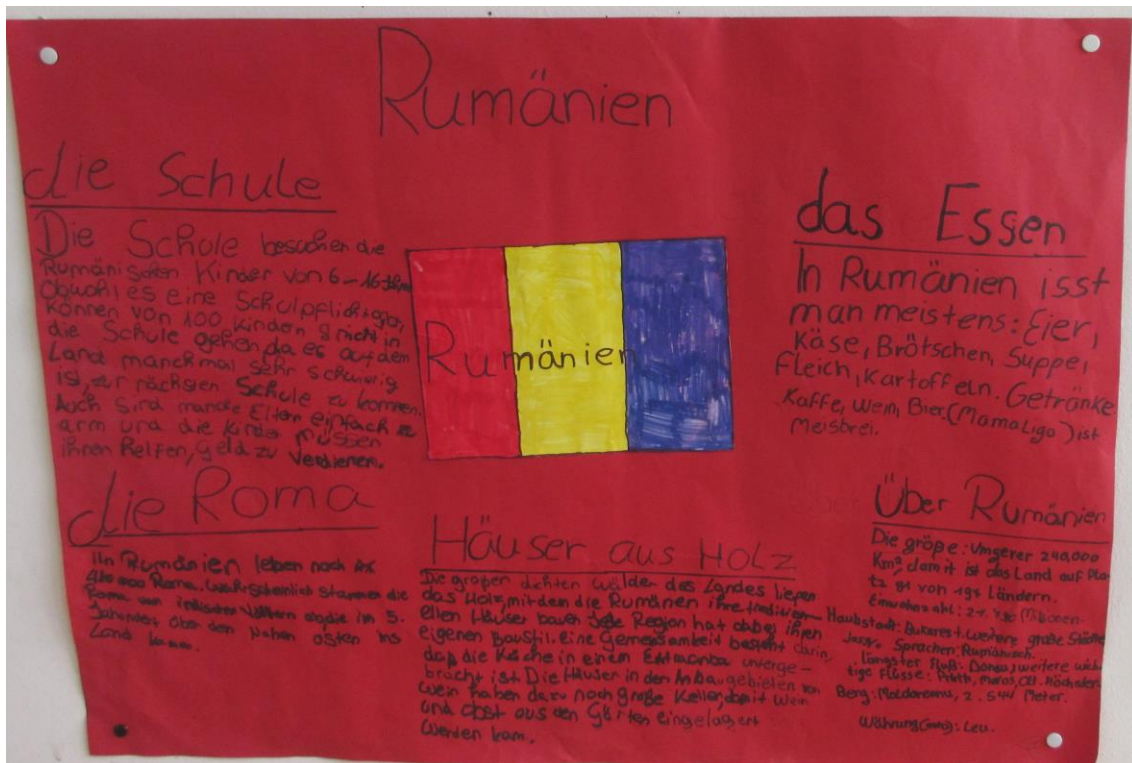 Rumänien
die Schule
Die Schule besuchen die
Rumänischen Kinder von 6-16
Obwohl es eine Schulpflicht
können von 100 Kindern nicht in
die Schule gehen da es auf dem
Land manchmal sehr schwirig
ist, zur nächsten Schule zu kommen.
Auch sind manche Eltern einfach zu
arm und die Kinder müssen
ihnen helfen, Geld zu Verdienen.
Rumänien
das Essen
In Rumänien isst
man meistens: Eier,
Käse, Brötschen, Suppe,
Fleich, Kartoffeln. Getränke
Kaffe, Wein, Bier. (Mamaliga) ist
Meisbrei.
die Roma
In Rumänien leben noch
Roma. Wahrscheinlich stammen die
Roma von indischen ab die im 5.
über den Nahen osten ins
Land kamen.
Häuser aus Holz
Die großen dichten Wälder des Landes
das Holz, mit dem die Rumänen ihre
ellen Häuser bauen Jede Region hat dabei ihren
eigenen Baustil. Eine Gemeinsamkeit besteht darin,
daß die Küche in einem unterge-
bracht ist. Die Häuser in den Anbaugebieten von
Wein haben dazu noch große Keller, damit Wein
und obst aus den Gärten eingelagert
werden kann.
Über Rumänien
Die größe: Ungerer 240,000
Km² damit ist das Land auf Pla-
tz 81 von 194 Ländern.
Einwohnezahl: Milionen.
Haubstadt: Bukarest. weitere große Städte
Sprachen: Rumänisch.
Längster Fluß: Donau, weitere wich-
tige Flüsse: Pruth, maros, Olt. Höchster
Berg: Moldoreanu, 2.544 Meter.
Währung: Leu.